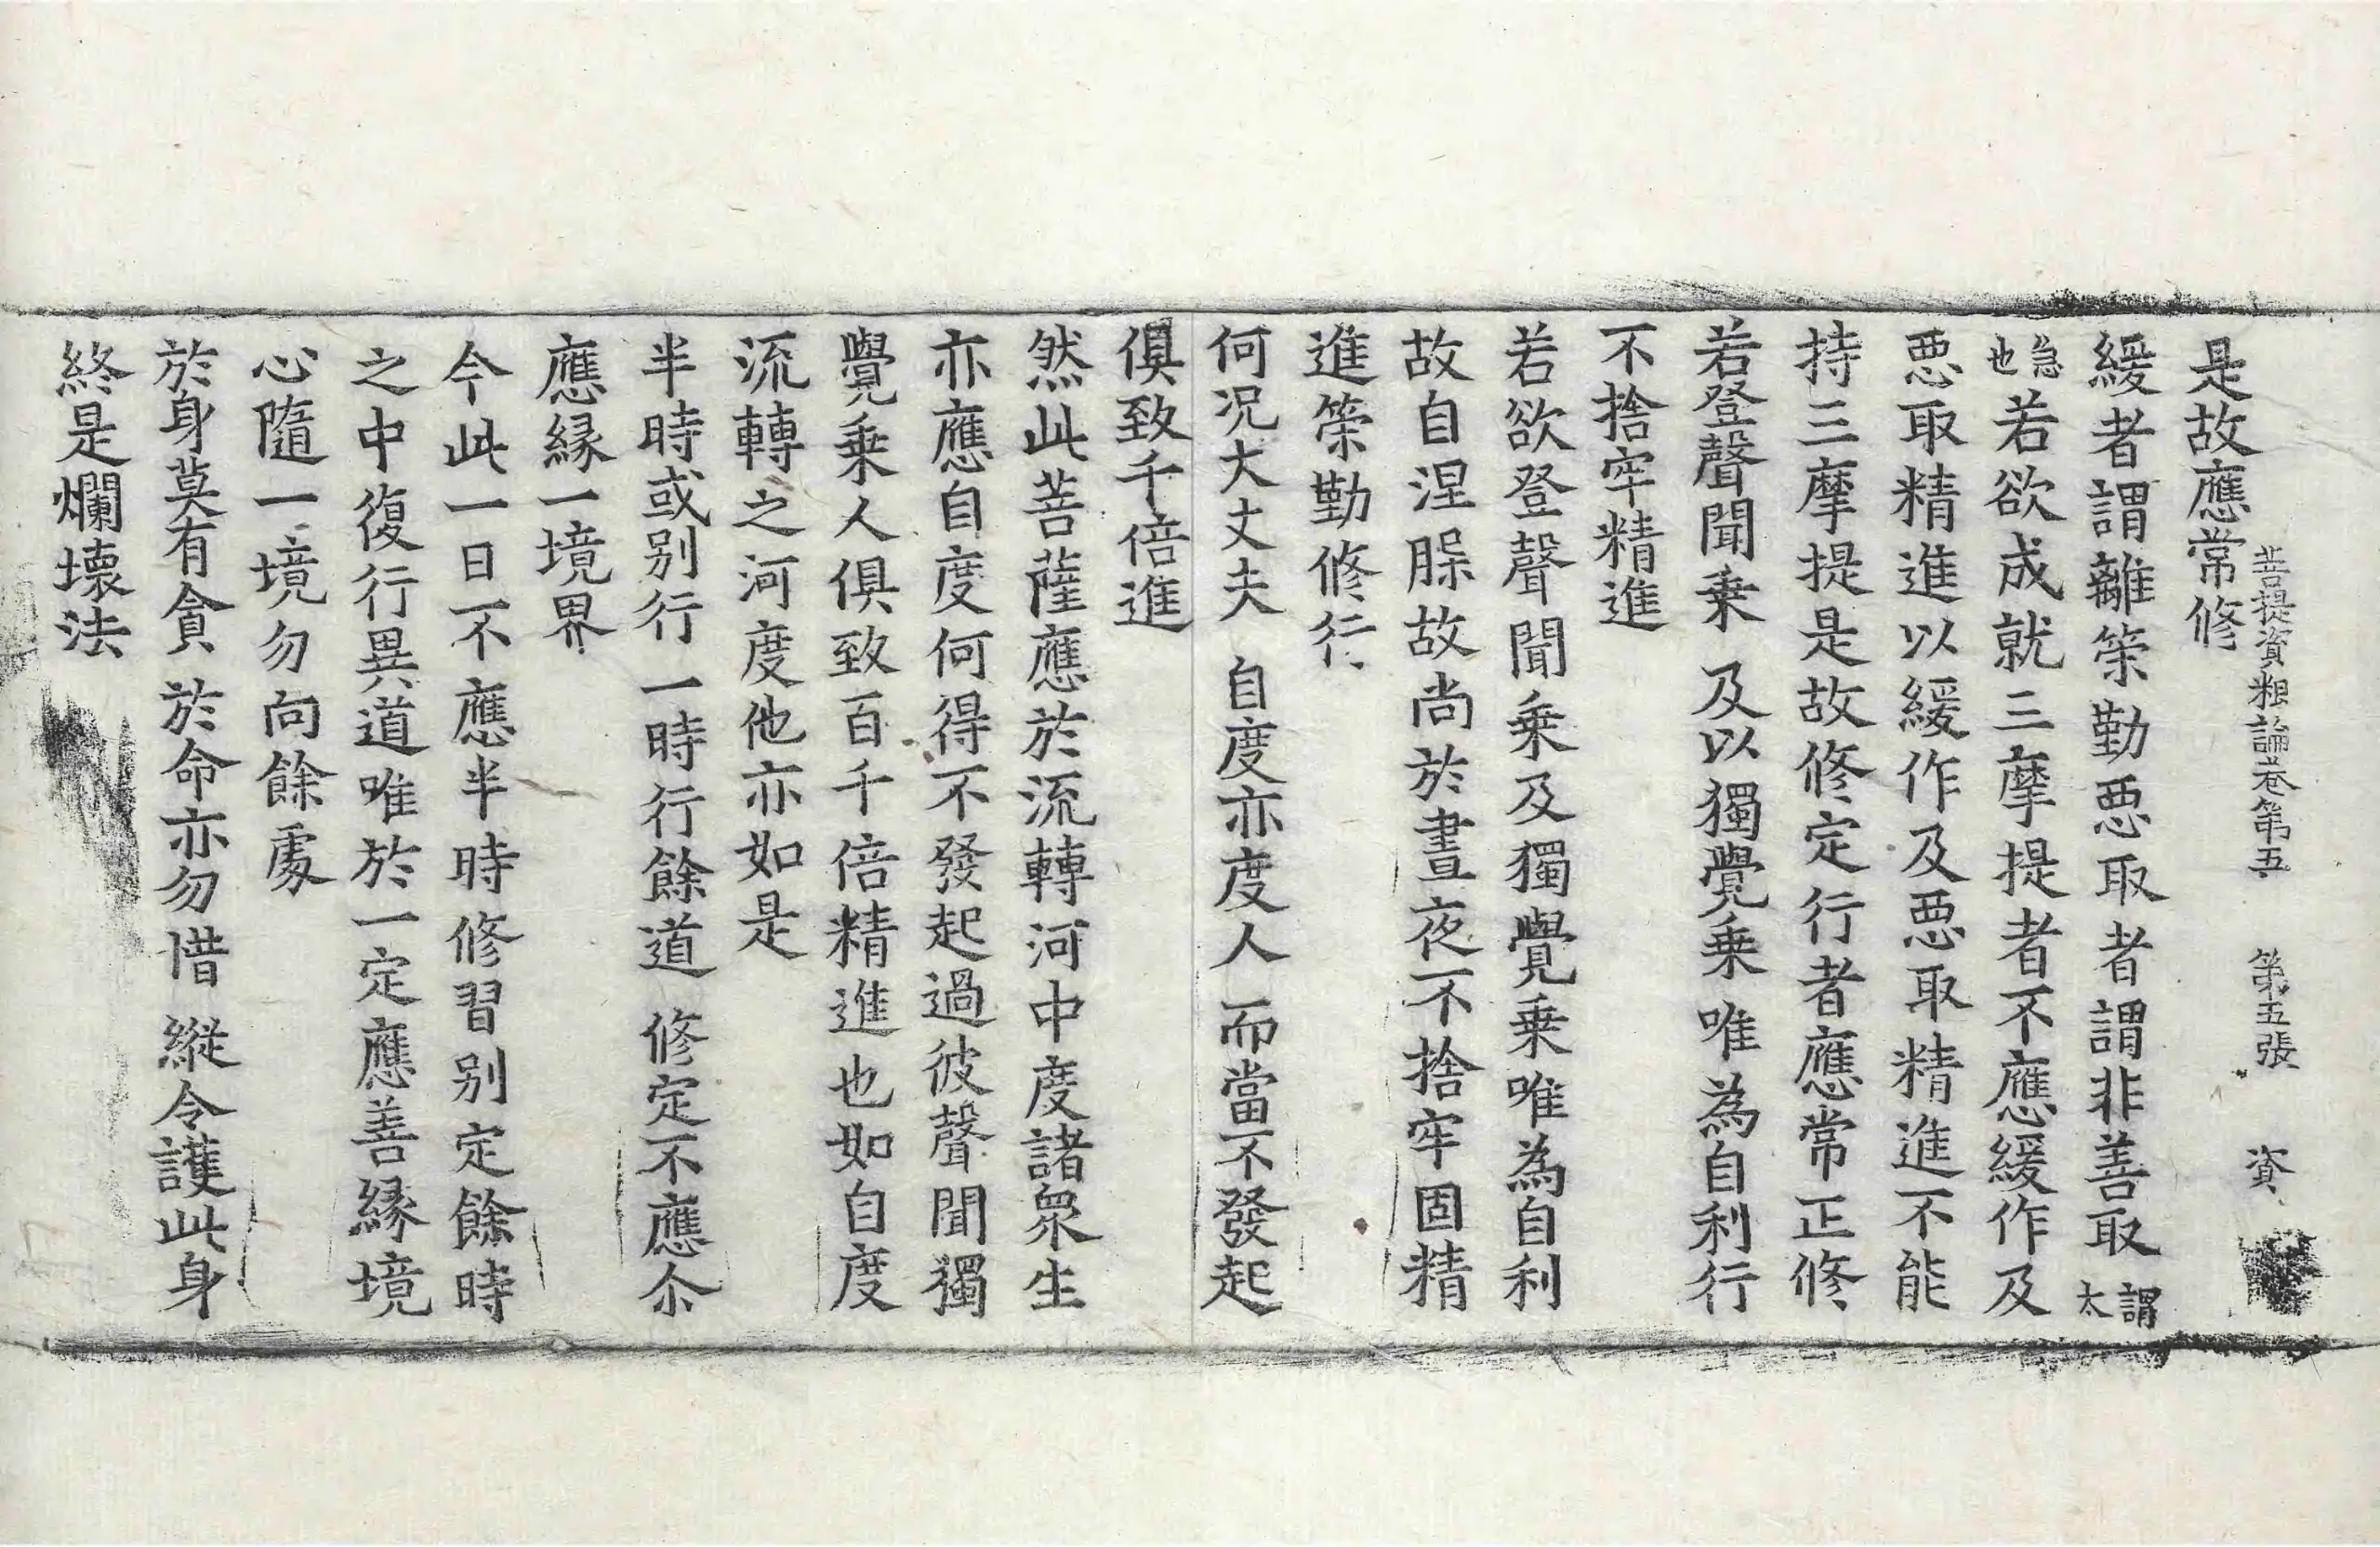 菩提資粮論卷第五　第五張　資
是故應常修
緩者謂離策勤惡取者謂非善取謂太
急也若欲成就三摩提者不應緩作及
惡取精進以緩作及惡取精進不能
持三摩提是故修定行者應常正修
若登聲聞乗　及以獨覺乗　唯為自利行
不捨牢精進
若欲登聲聞乗及獨覺乗唯為自利
故自涅脲故尚於晝夜不捨牢固精
進策勤修行
何况大丈夫　自度亦度人　而當不發起
俱致千倍進
然此菩薩應於流轉河中度諸衆生
亦應自度何得不發起過彼聲聞獨
覺乗人俱致百千倍精進也如自度
流轉之河度他亦如是
半時或别行　一時行餘道　修定不應尒
應緣一境界
今此一日不應半時修習别定餘時
之中復行異道唯於一定應善緣境
心隨一境勿向餘處
於身莫有貪　於命亦勿惜　縱令護此身
終是爛壞法